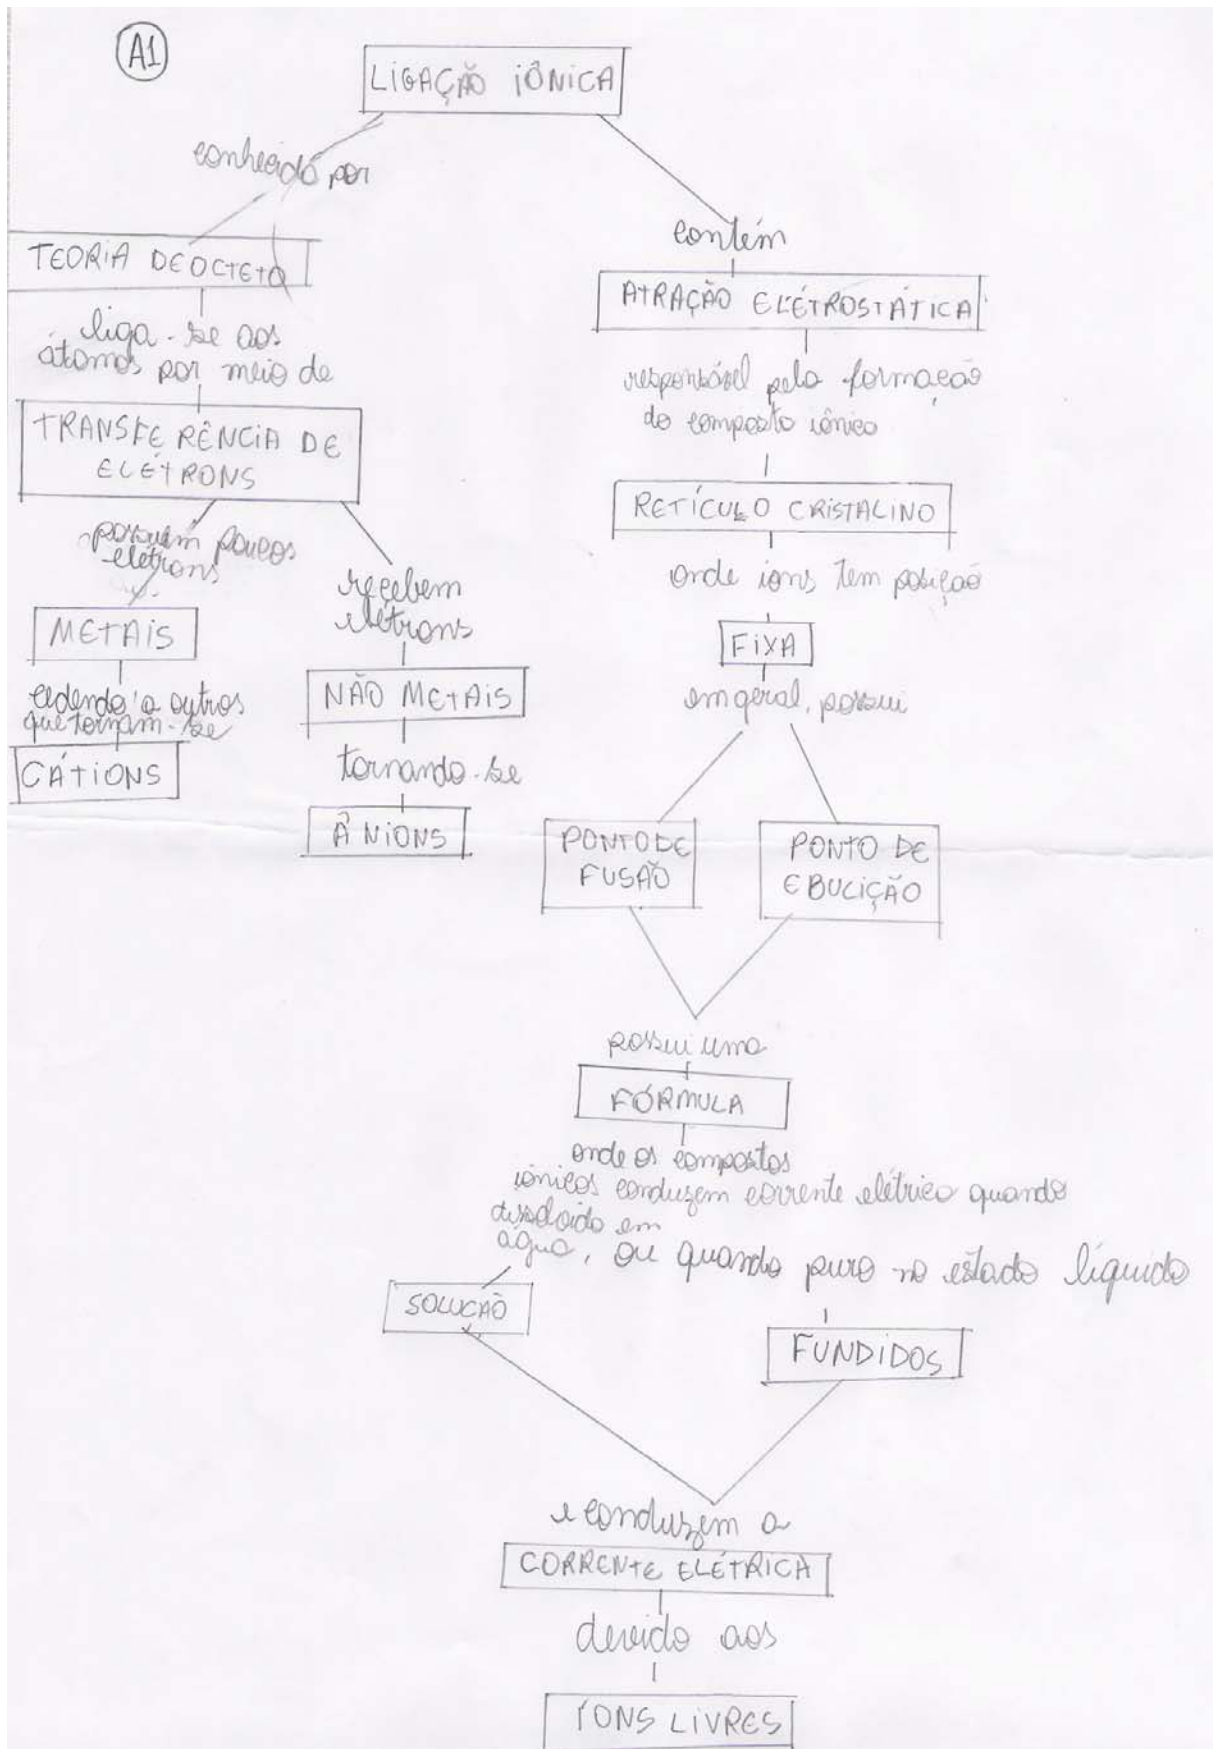 A1
LIGAÇÃO IÔNICA
conhecida por
TEORIA DE OCTETO
liga-se aos
átomos por meio de
TRANSFERÊNCIA DE
ELÉTRONS
possuem poucos
elétrons
METAIS
cedendo a outros
que tornam-se
CÁTIONS
recebem
elétrons
NÃO METAIS
tornando-se
ÂNIONS
contém
ATRAÇÃO ELÉTROSTÁTICA
responsável pela formação
do composto iônico
RETÍCULO CRISTALINO
onde ions tem posição
FIXA
em geral, possui
PONTO DE
FUSÃO
PONTO DE
EBULIÇÃO
possui uma
FÓRMULA
onde os compostos
iônicos conduzem corrente elétrica quando
em
água, ou quando puro no estado líquido
SOLUCÃO
FUNDIDOS
e conduzem a
CORRENTE ELÉTRICA
devido aos
ÍONS LIVRES